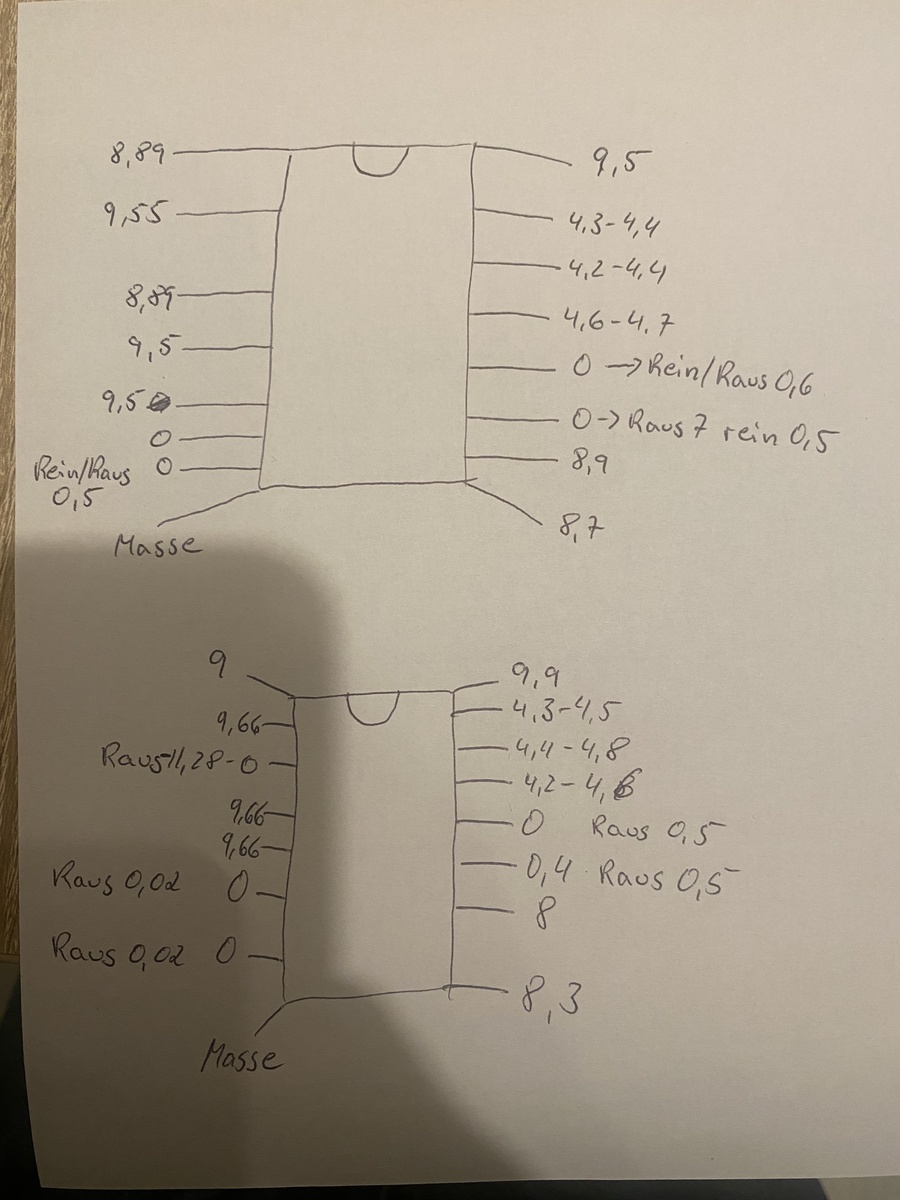 8,89
9,5
9,55
4,3-4,4
4,2-4,4
8,89
4,6-4,7
9,5
0 → Rein/Raus 0,6
9,5
0 → Raus 7 rein 0,5
0
8,9
Rein/Raus 0
0,5
8,7
Masse
9
9,9
9,66
4,3-4,5
Raus 11,28-0
4,4-4,8
9,66
4,2-4,6
9,66
0 Raus 0,5
Raus 0,02 0
0,4 Raus 0,5
8
Raus 0,02 0
8,3
Masse